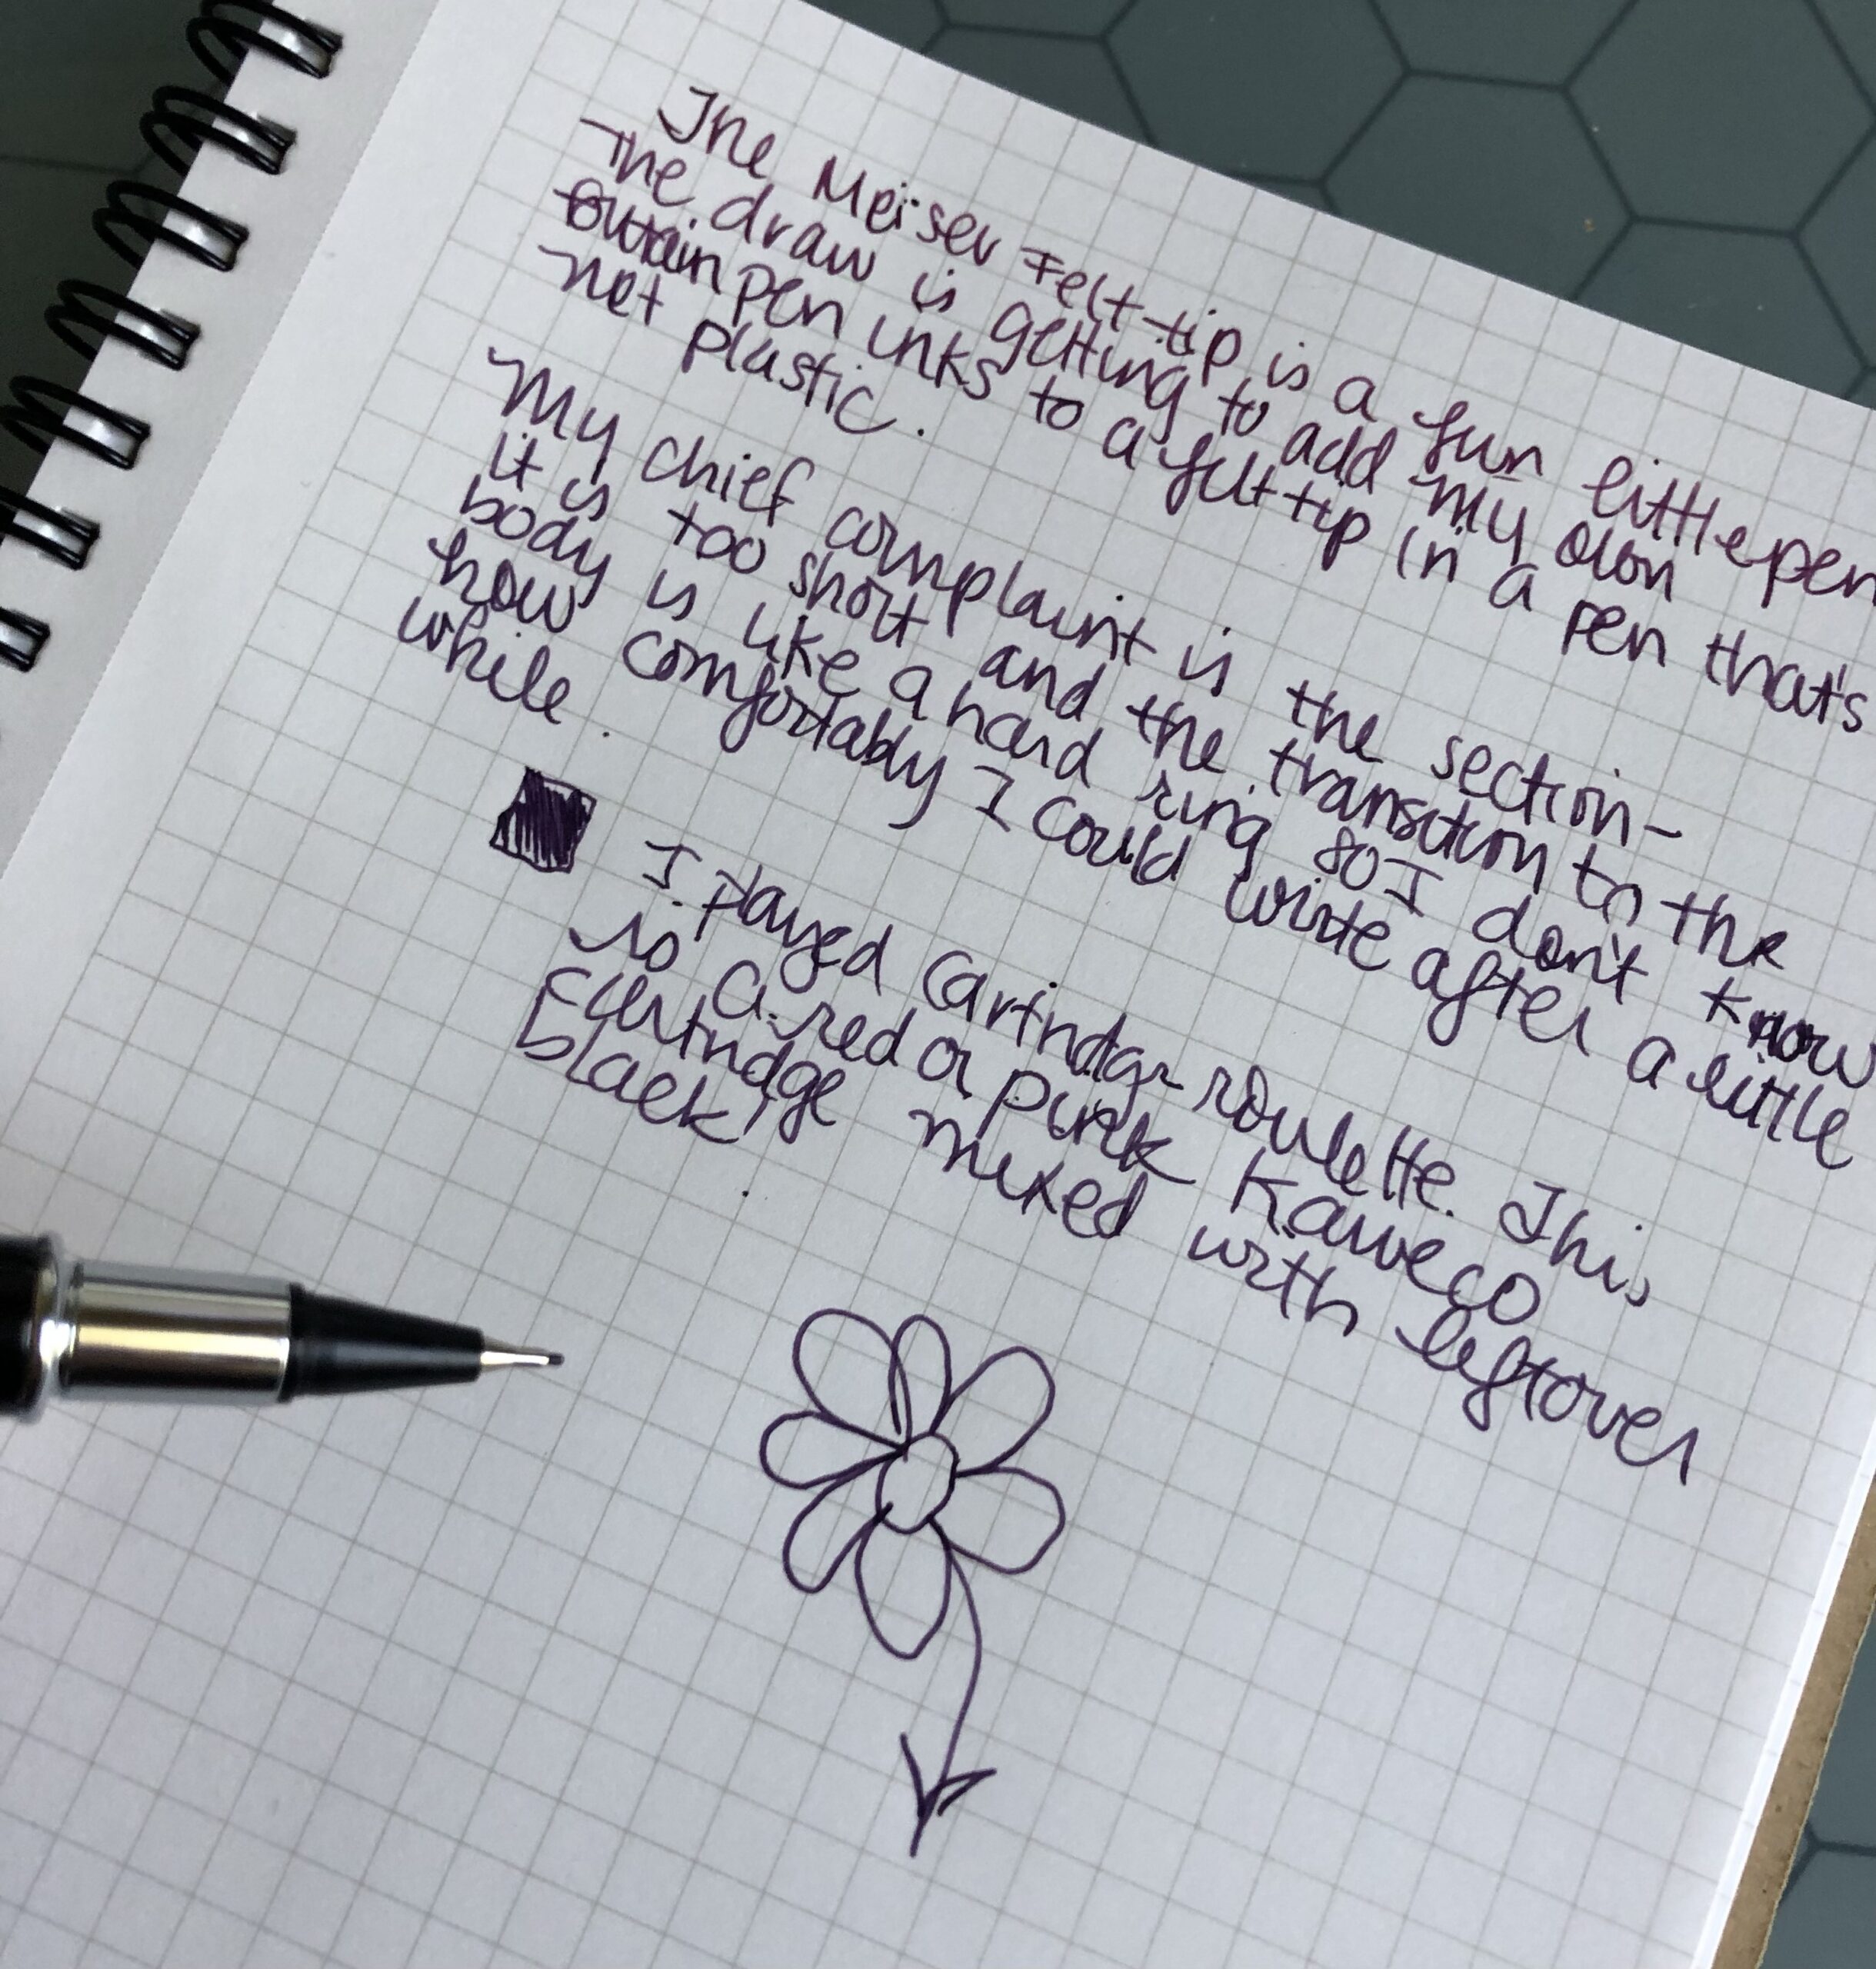 The Meiser Felt tip is a fun little pen
The draw is getting to add my own
fountain pen inks to a felt tip in a pen that's
not plastic.
My chief complaint is the section-
it is too short and the transition to the
body is like a hard ring so I don't know
how comfortably I could write after a little
while.
I played cartridge roulette. This
is a red or pink Kaweco
cartridge mixed with leftover
black!